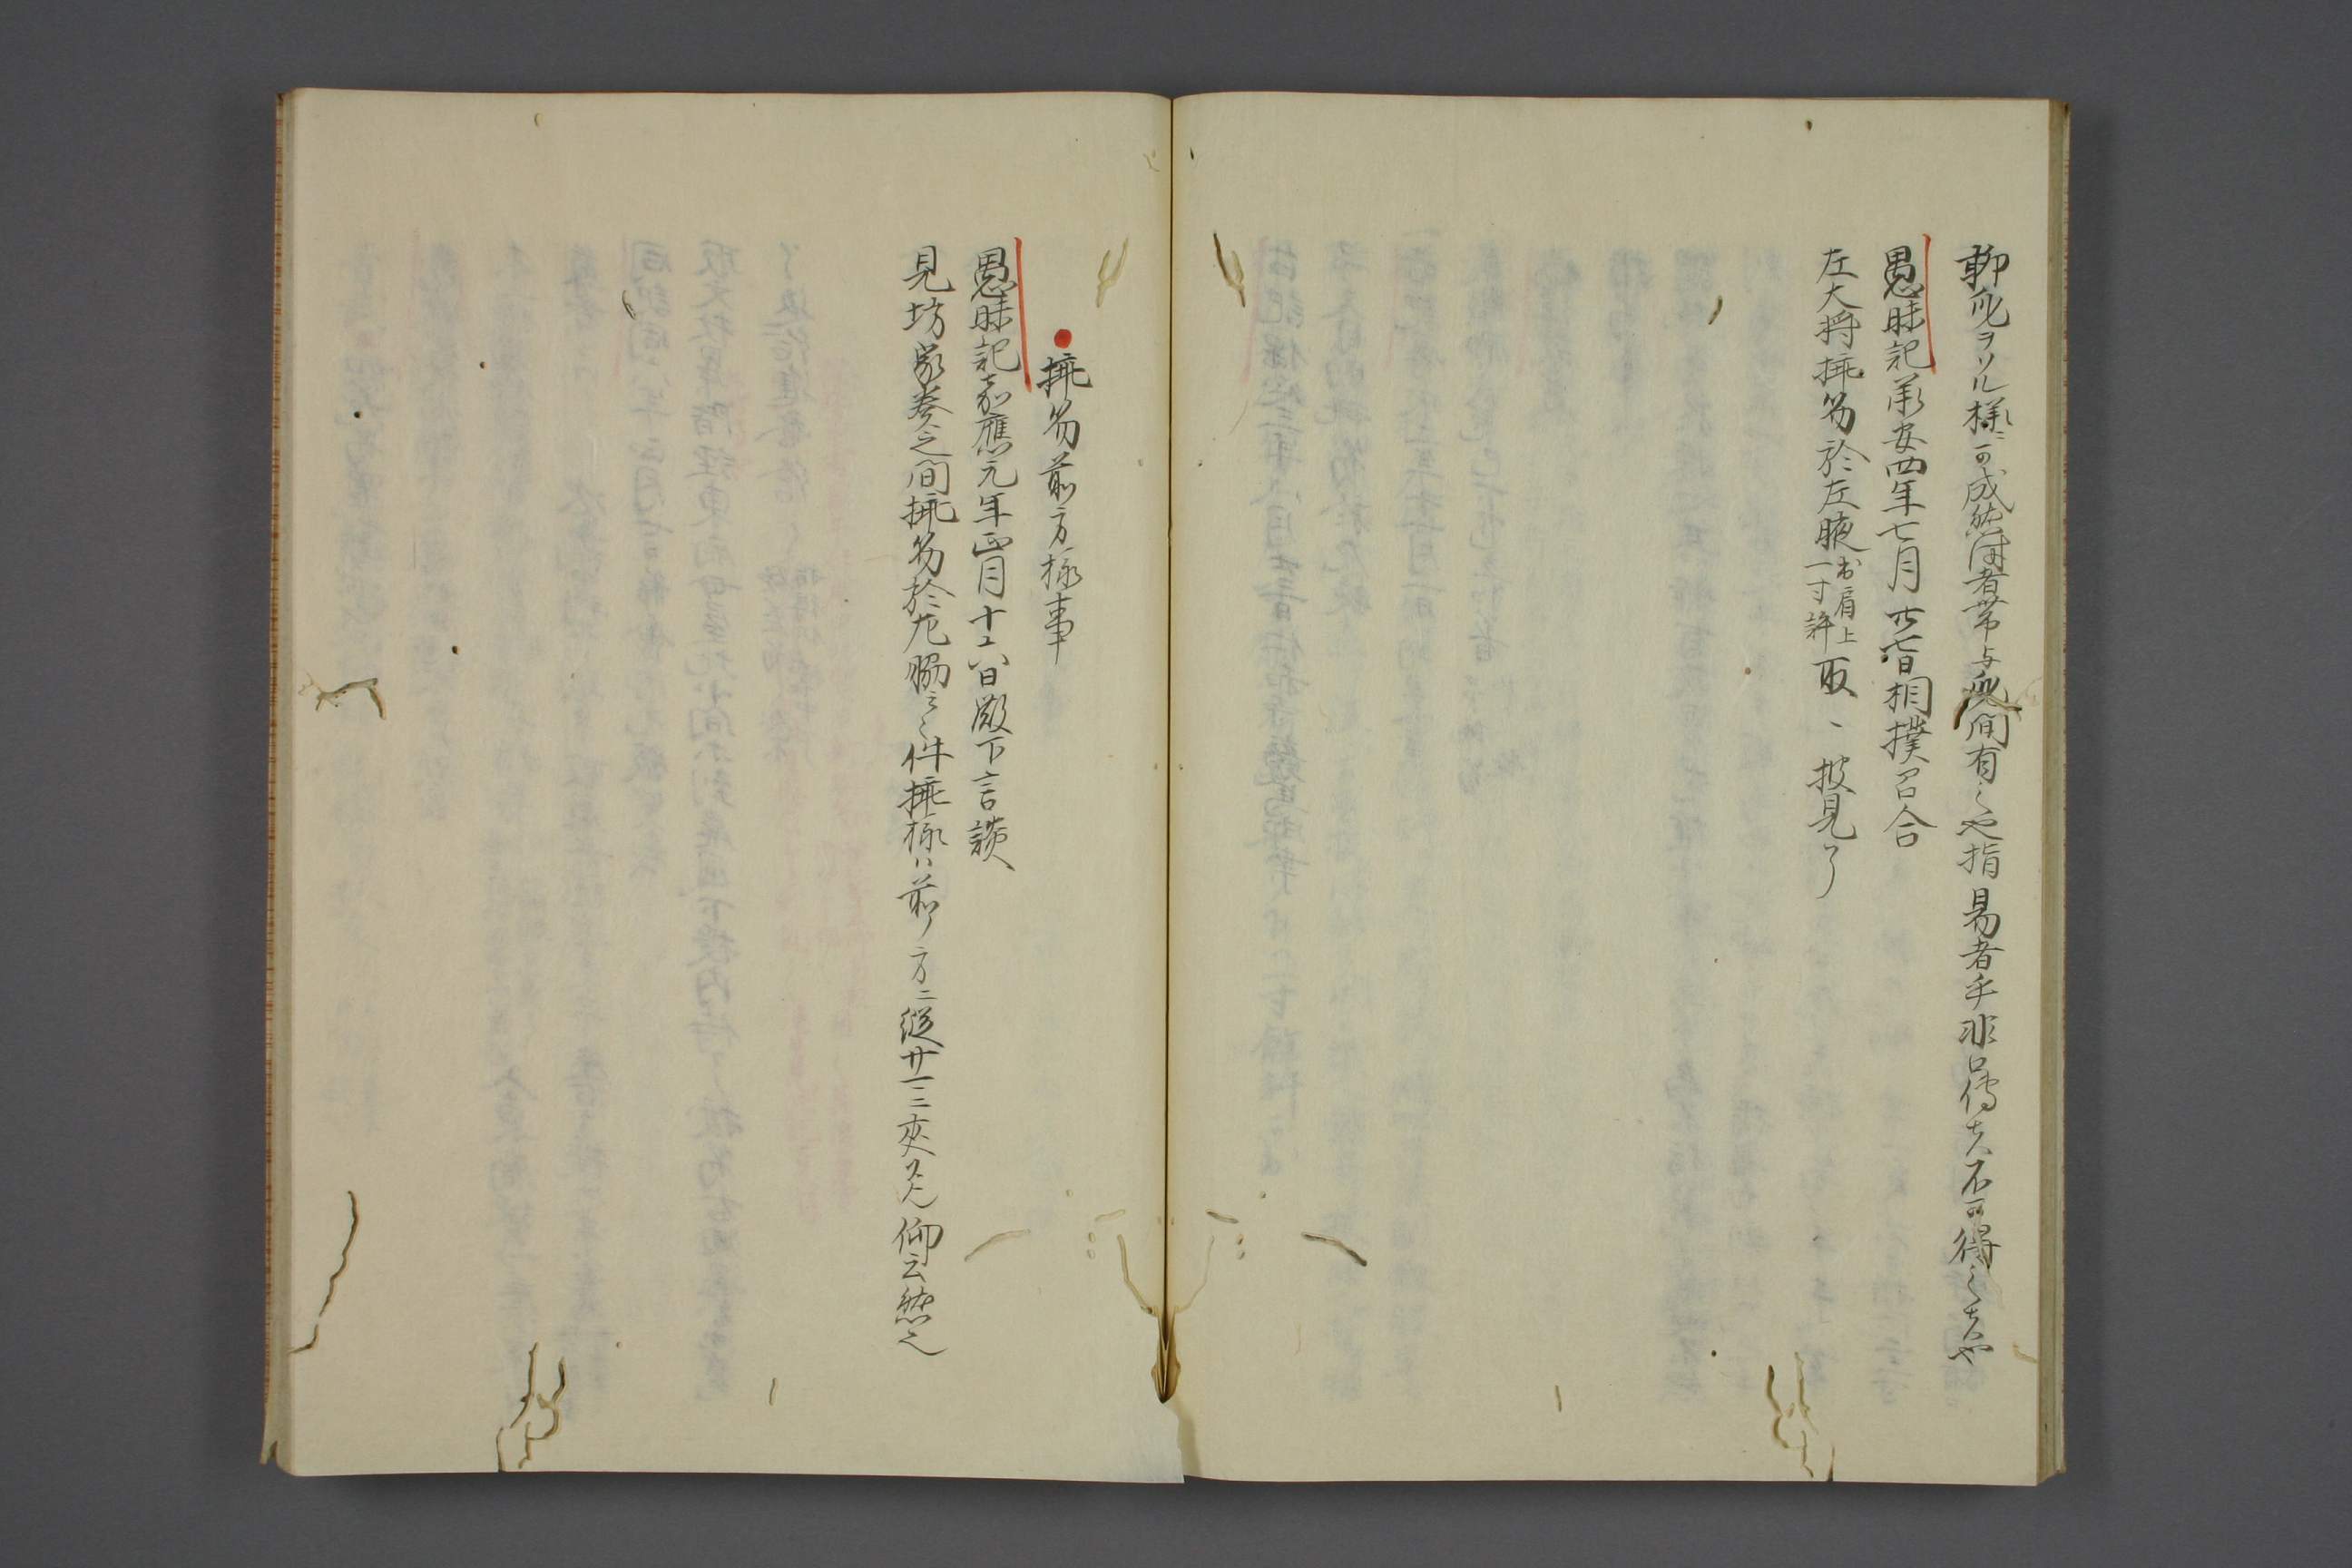 聊爪ヲソル様ニ可成然者帯与爪間有之也指易者乎非口傳者不可得之者也
愚昧記承安四年七月廿七日相撲召合
左大将挿笏於左腋出肩上一寸許取、披見了
挿笏前方様事
愚昧記嘉應元年正月十六日殿下言談
見坊家奏之間挿笏於左脇云々件挿様ハ前ノ方ニ縦サマニ夾之 仰云然也